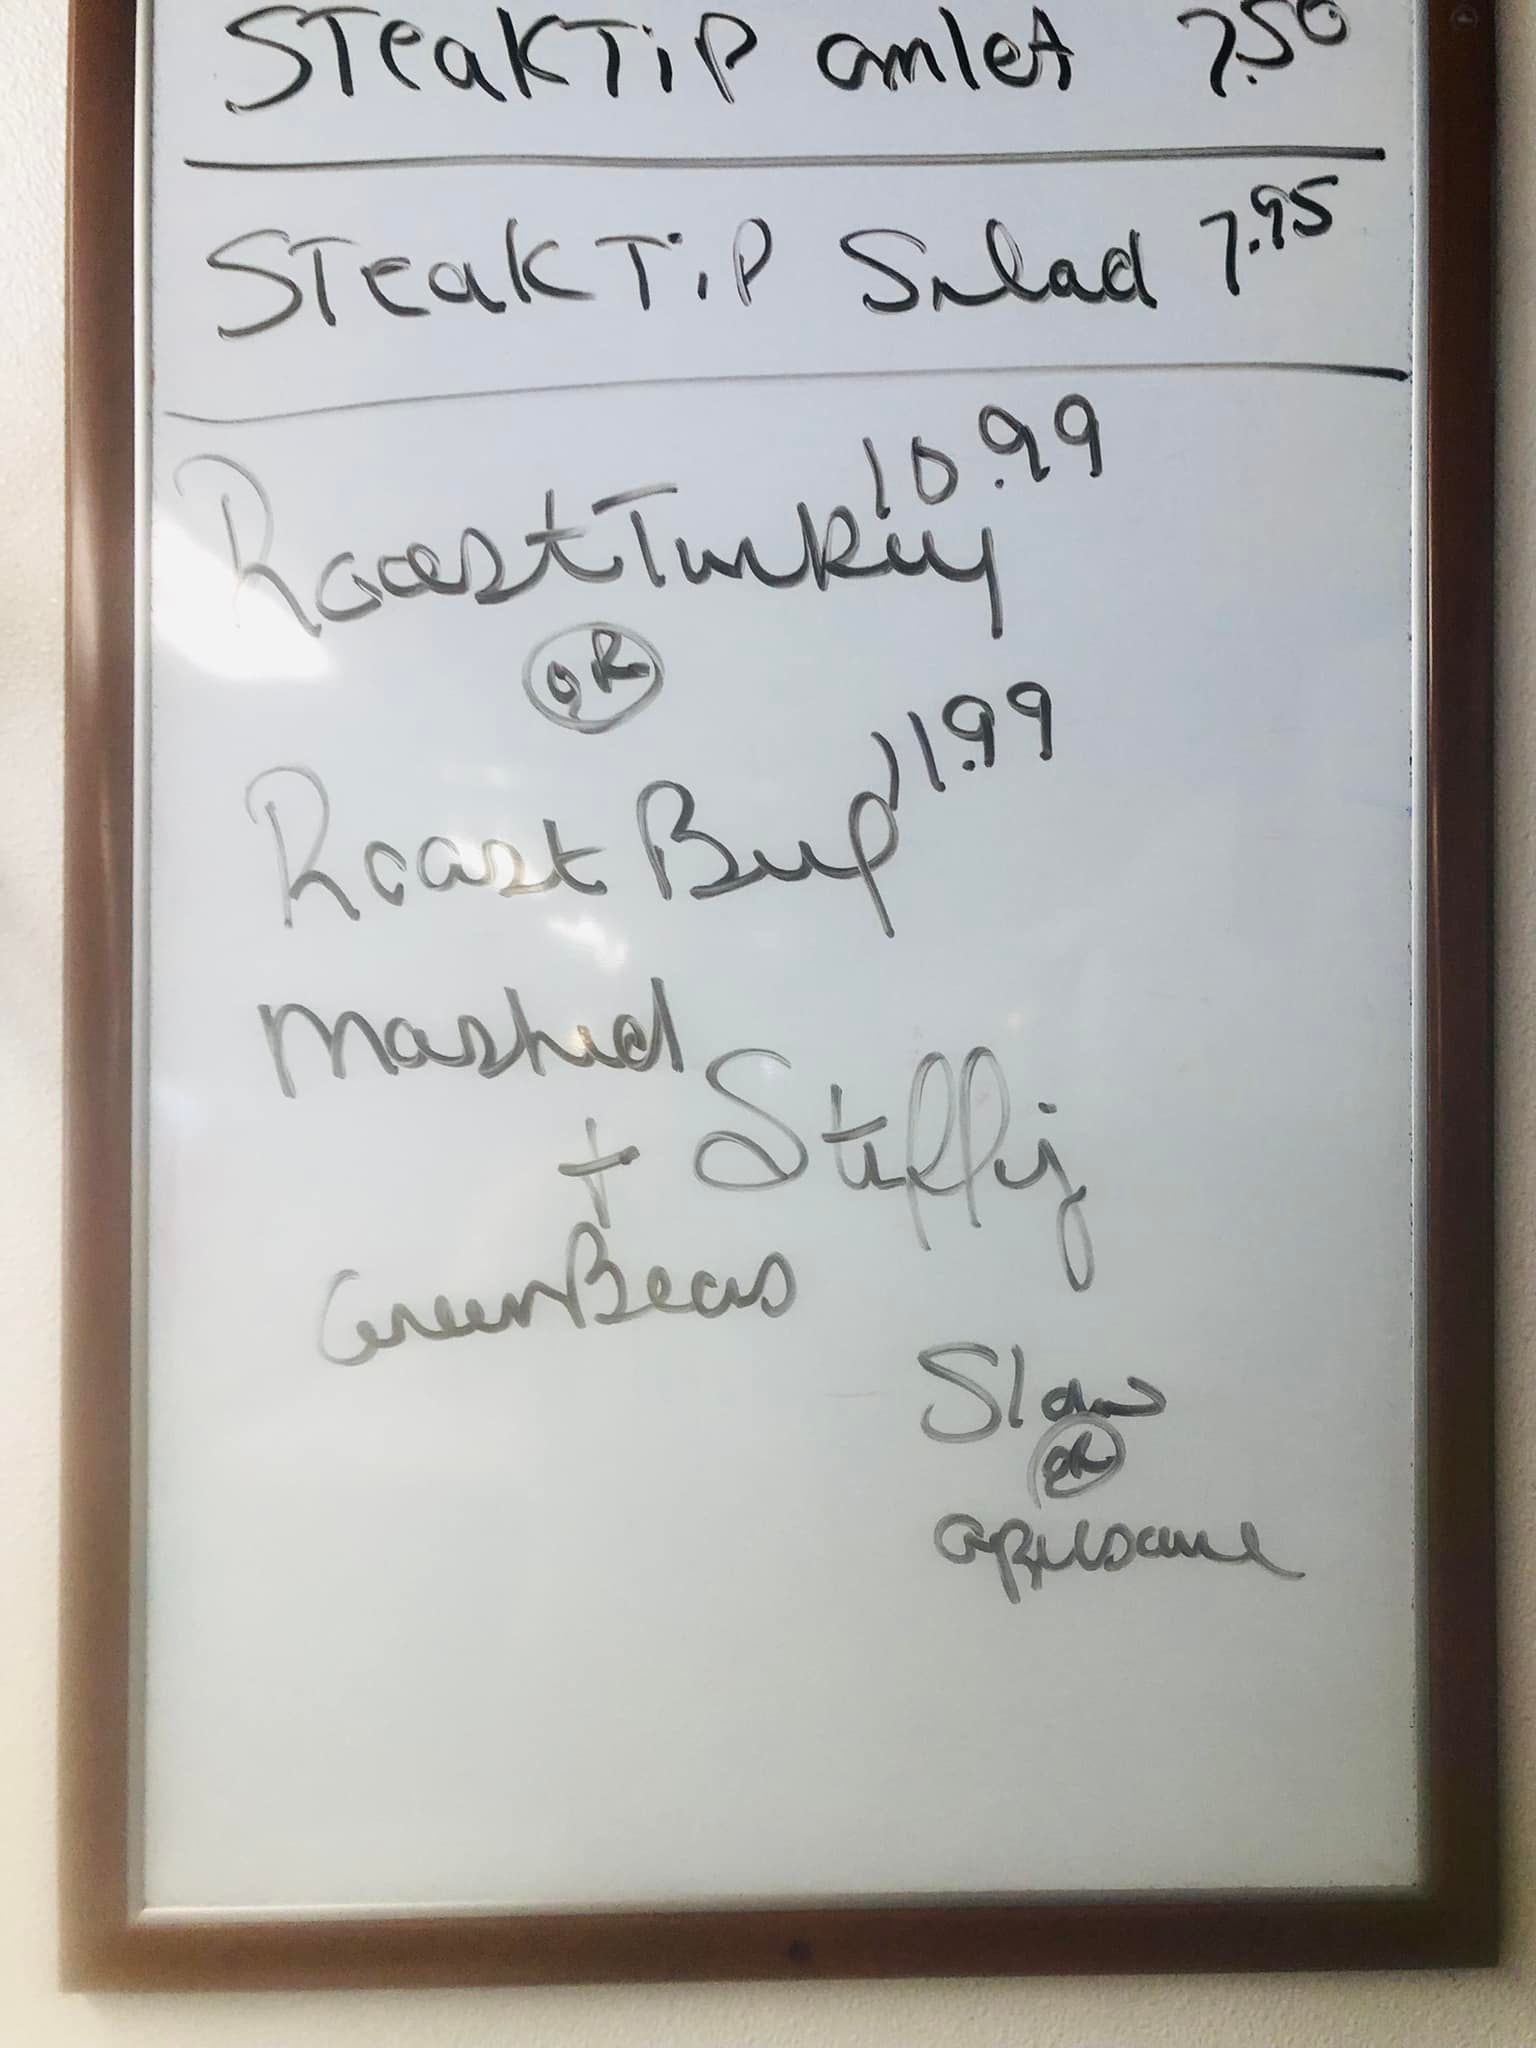 STeak TiP omlet 7.50
STeak TiP Salad 7.95
10.99
Roast Turkey
OR
11.99
Roast Beef
mashed
+ Stuffing
Green Beans
Slaw
OR
applesauce